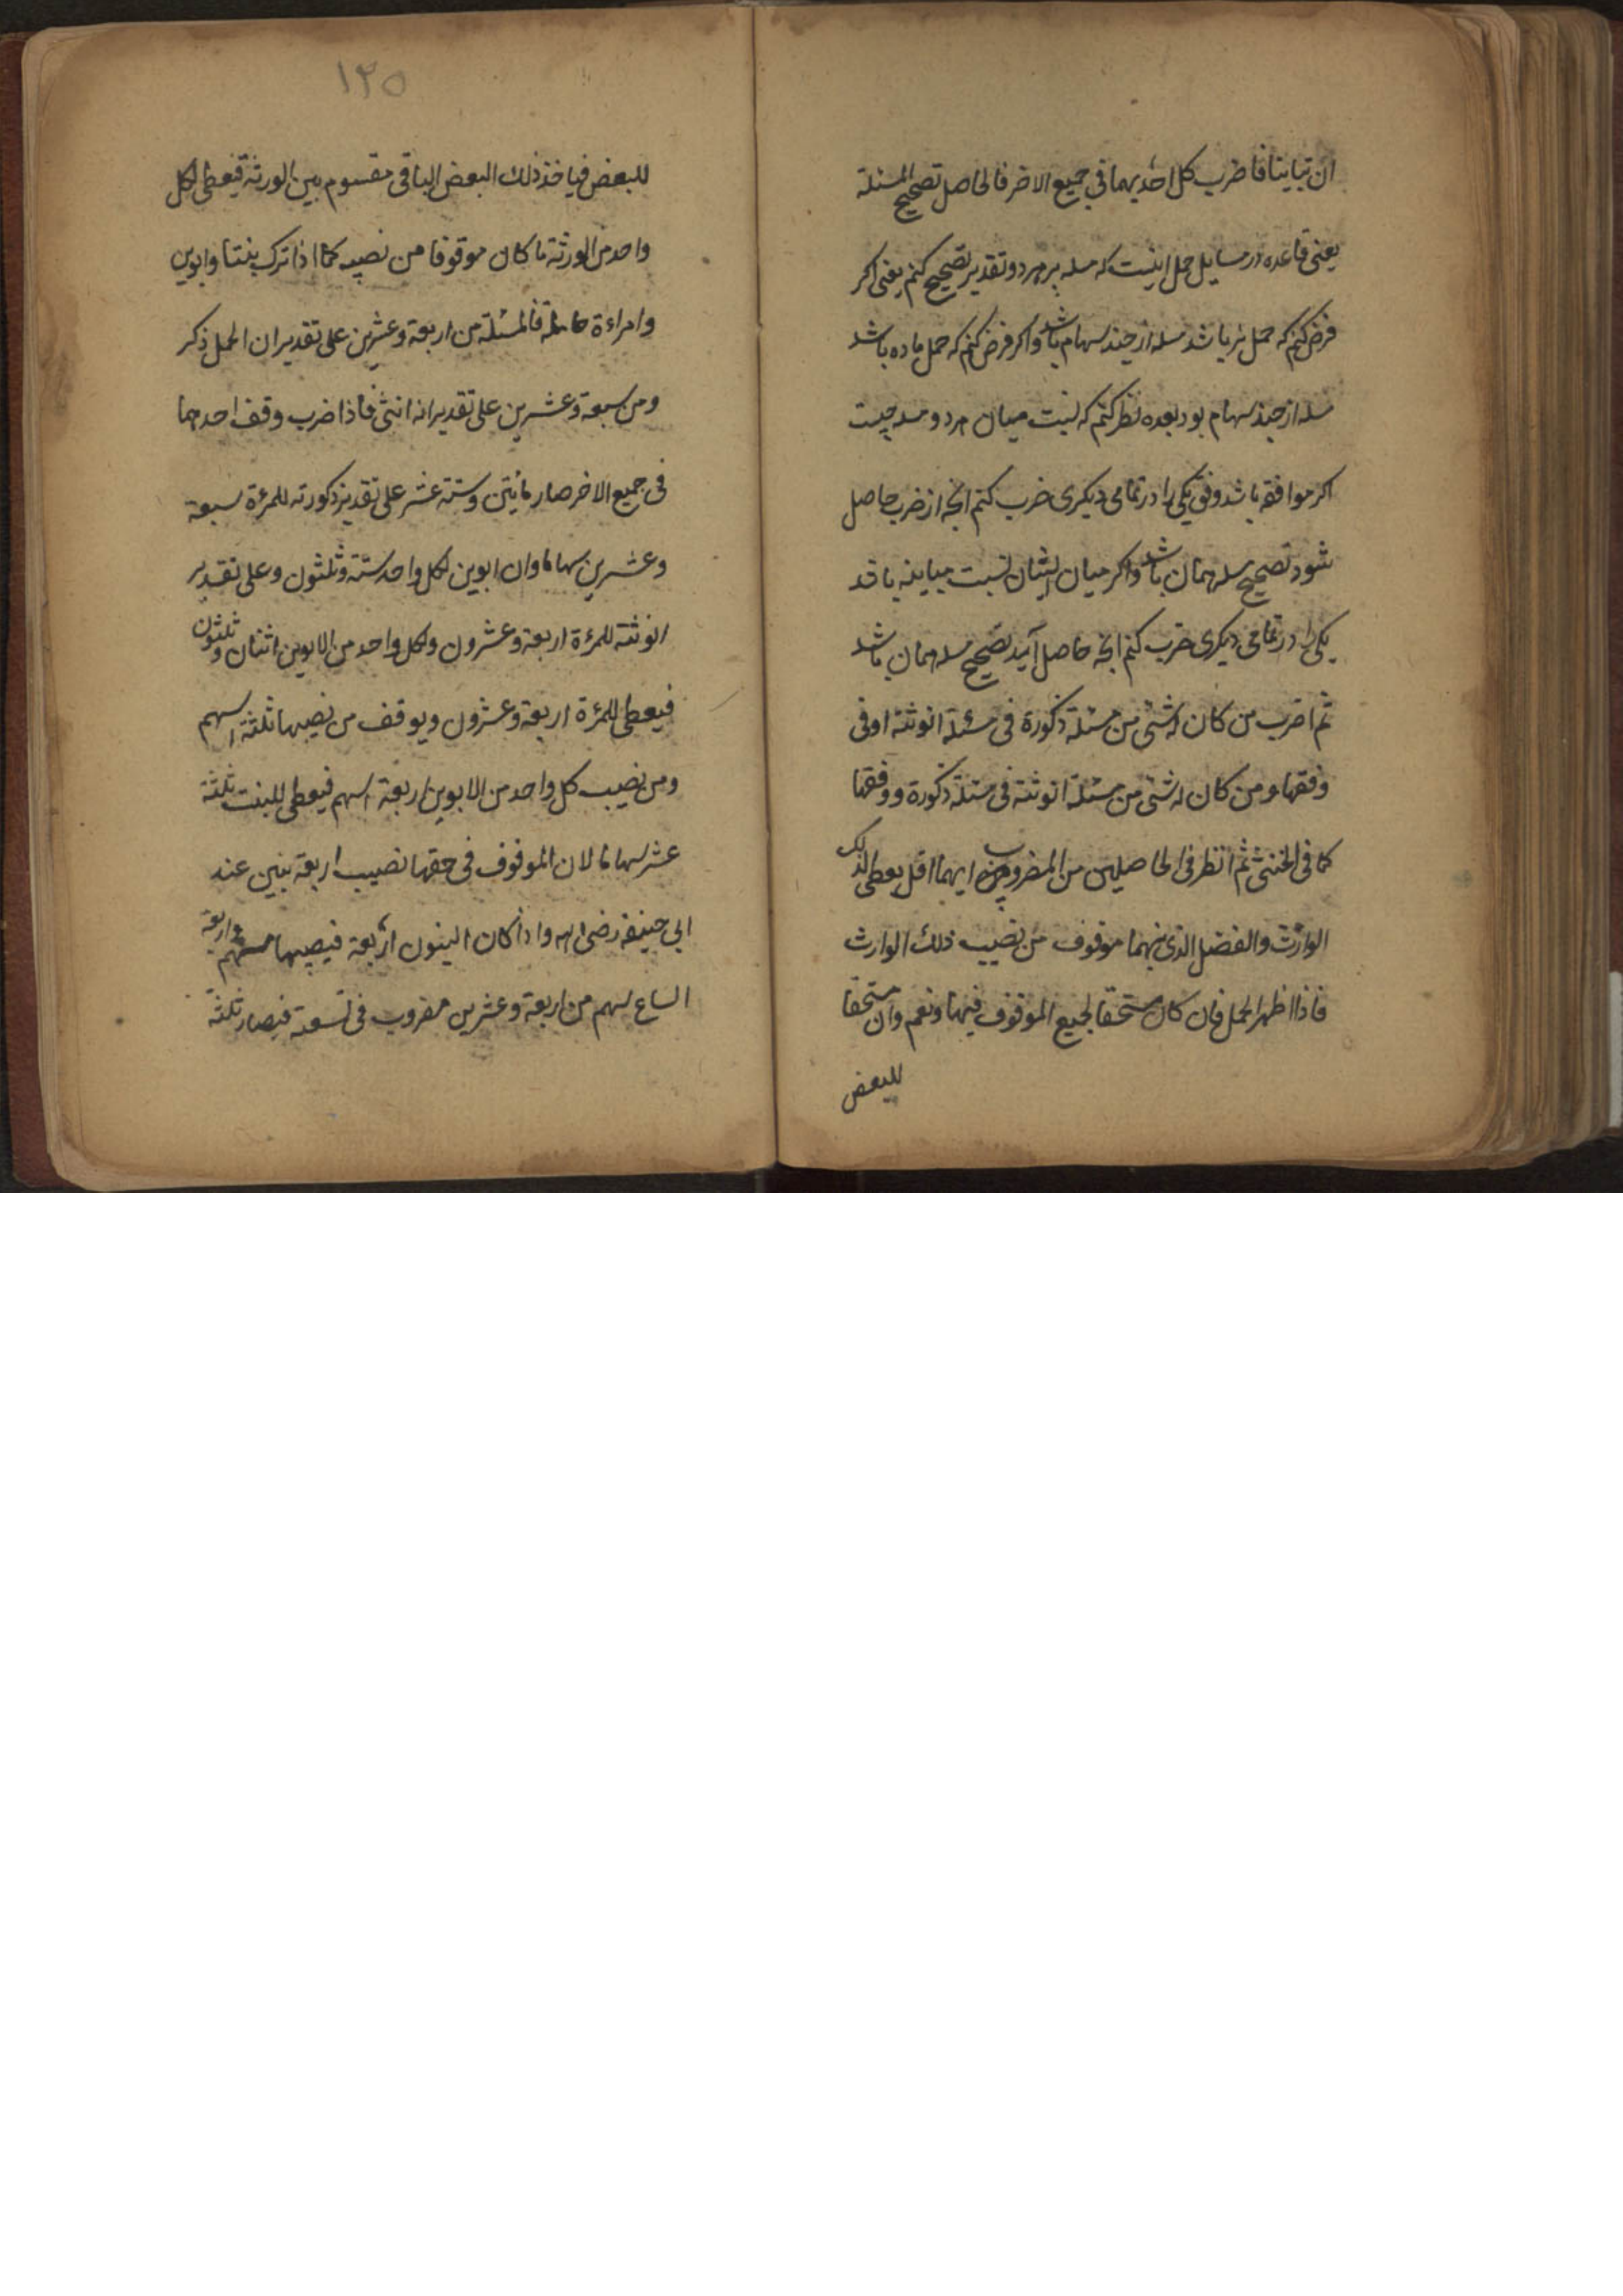 ان تباینا فاضرب کل احدیهما فی جمیع الاخر فالحاصل تصحیح المسئلة
یعنی قاعده در مسایل حمل اینست که مسله بر هر دو تقدیر تصحیح کنم یعنی اکر
فرض کنم که حمل نر باشد مسله از چند سهام باشد واکر فرض کنم که حمل ماده باشد
مسله از چند سهام بود بعده نظر کنم که نسبت میان هر دو مسله چیست
اکر موافقه باشد وفق یکی را در تمامی دیکری ضرب کنم انچه از ضرب حاصل
شود تصحیح مسله همان باشد واکر میان ایشان نسبت مباینه باشد
یکی را در تمامی دیکری ضرب کنم انچه حاصل آید تصحیح مسله همان باشد
ثم اضرب من کان له شئ من مسئلة ذکورة فی مسئلة انوثته او فی
وفقها ومن کان له شئ من مسئلة انوثته فی مسئلة ذکورة ووفقها
کما فی الخنثی ثم انظر فی الحاصلین من المضروب ایهما اقل یعطی لذلک
الوارث والفضل الذی بینهما موقوف من نصیب ذلک الوارث
فاذا اظهر الحمل فان کان مستحقا لجمیع الموقوف فیها ونعم وان مستحقا
للبعض
١٢٥
للبعض فیاخذ ذلک البعض الباقی مقسوم بین الورثة فیعطی لکل
واحد من الورثة ما کان موقوفا من نصیبه کما اذا ترک بنتا وابوین
وامراءة حاملة فالمسئلة من اربعة وعشرین علی تقدیر ان الحمل ذکر
ومن سبعة وعشرین علی تقدیر انه انثی فاذا ضرب وقف احدهما
فی جمیع الاخر صار مائتین وستة عشر علی تقدیر ذکورته للمرءة سبعة
وعشرین سهاما وان ابوین لکل واحد ستة وثلثون وعلی تقدیر
انوثته للمرءة اربعة وعشرون ولکل واحد من الابوین اثنان وثلثون
فیعطی للمرءة اربعة وعشرون ویوقف من نصیبها ثلثة اسهم
ومن نصیب کل واحد من الابوین اربعة اسهم فیعطی للبنت ثلثة
عشر سهاما لان الموقوف فی حقها نصیب اربعة بنین عند
ابی حنیفه رضی الله واذا کان البنون اربعة فیصیبها سهم واربعة
اتساع سهم من اربعة وعشرین مضروب فی تسعة فیصار ثلثة